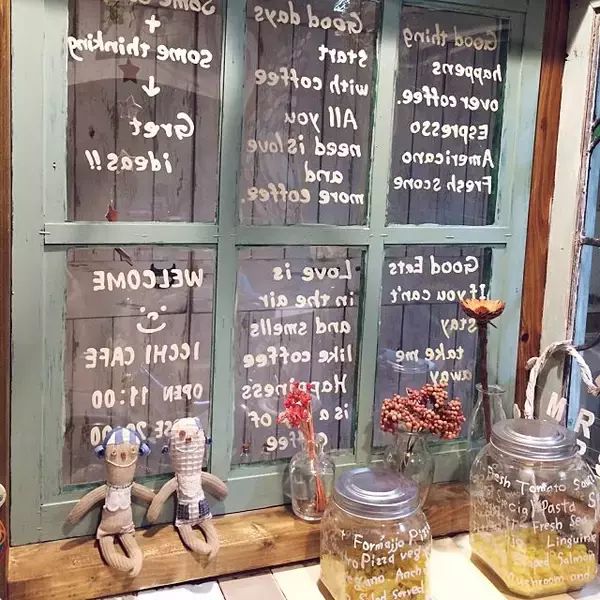 Some
+
some thinking
↓
Gret
ideas!!
Good days
start
with coffee
All you
need is love
and
more coffee.
Good thing
happens
over coffee.
Espresso
Americano
Fresh scone
WELCOME
ICCHI CAFE
OPEN 11:00
20:00
Love is
in the air
and smells
like coffee
Happiness
is a
of
coffee
Good Eats
If you can't
stay
take me
away
M R
Formajjo
Pizza
Salad Served
Fresh Tomato
Special Pasta
Fresh
Linguine
Salmon
Mushroom and